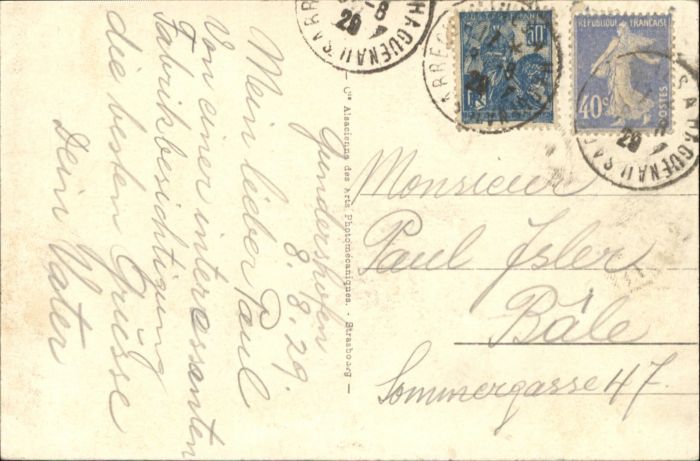 Gundershofen
8. 8. 29.
Mein lieber Paul
Von einer interessanten
Fabrikbesichtigung
die besten Grüsse
Dein Vater
Cie Alsacienne des Arts Photomécaniques. - Strasbourg
HAGUENAU
8
29
50c
29
RÉPUBLIQUE FRANÇAISE
40c
POSTES
HAGUENAU
29
Monsieur
Paul Isler
Bâle
Sommergasse 47.